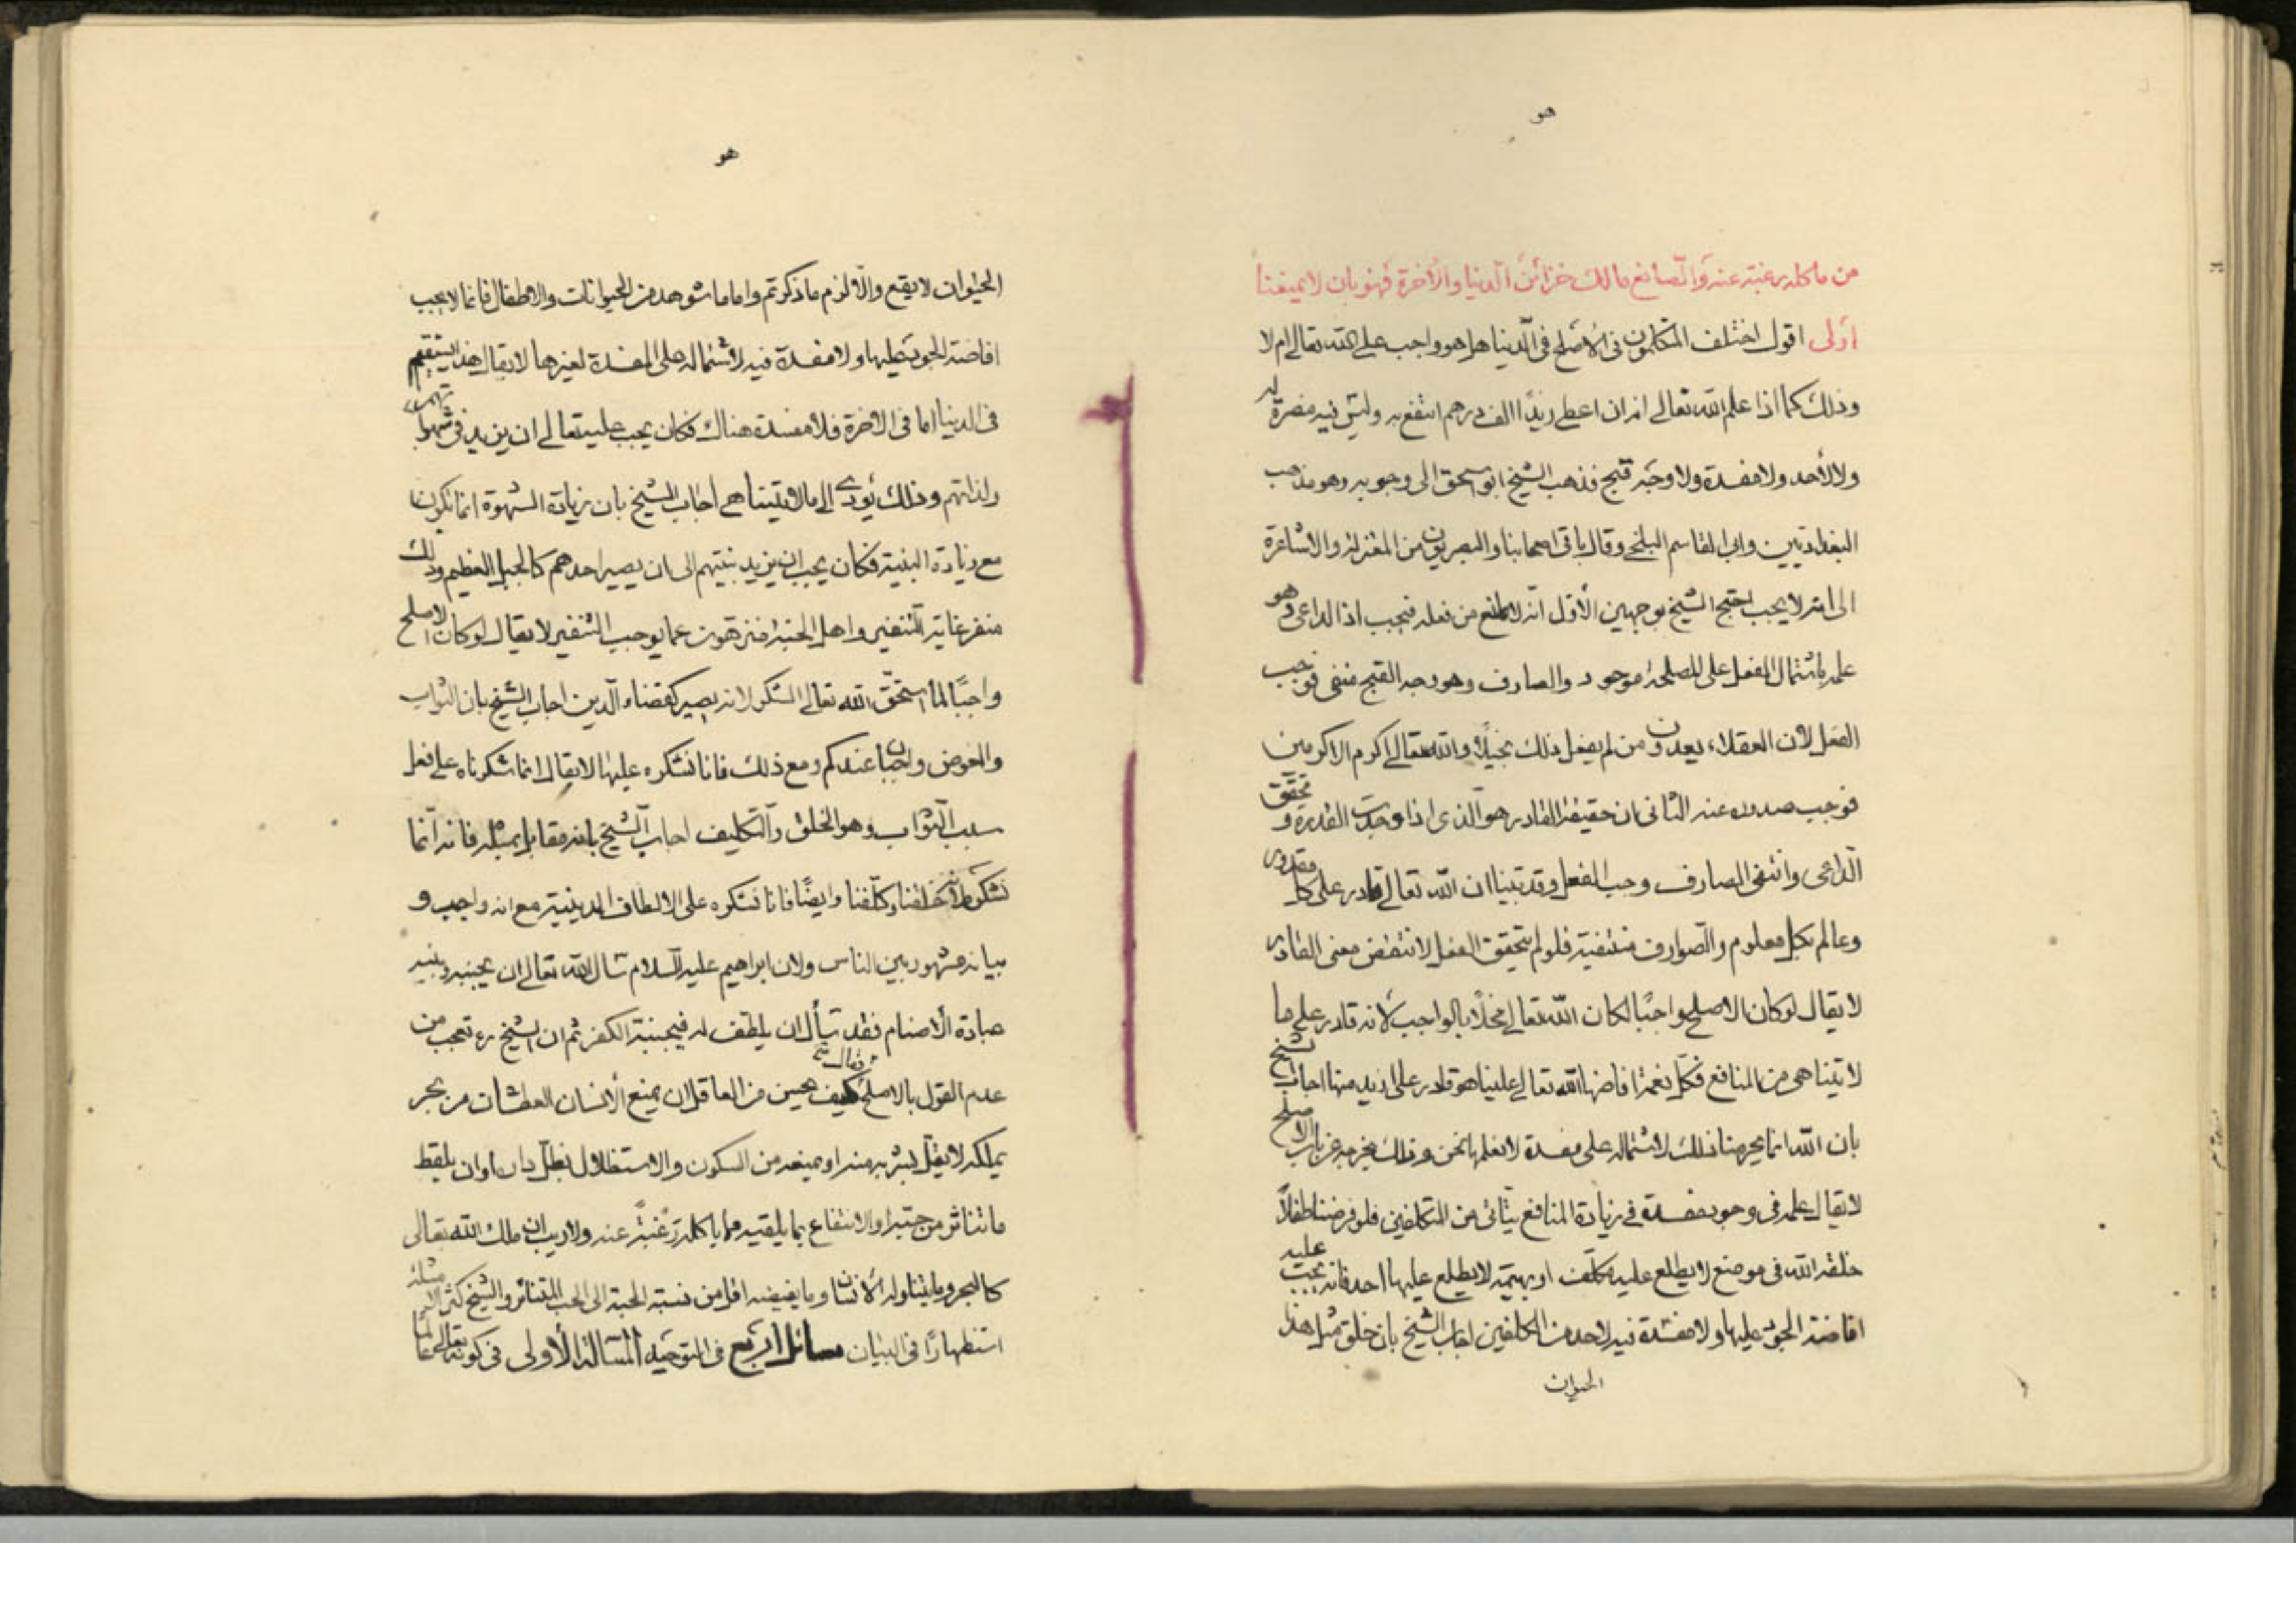 هو
من ماكله رغبة عنه والصانع مالك خزائن الدنيا والآخرة فهو بان لا يمنعنا
أولى اقول اختلف المتكلمون فى الأصلح فى الدنيا هل هو واجب على الله تعالى ام لا
وذلك كما اذا علم الله تعالى انه ان اعطى زيدًا الف درهم انتفع به وليس فيه مضرة له
ولا لأحد ولا مفسدة ولا وجه قبح فذهب الشيخ ابو اسحق الى وجوبه وهو مذهب
البغداديين وابى القاسم البلخى وقال باقى اصحابنا والبصريون من المعتزلة والاشاعرة
الى انه لا يجب احتج الشيخ بوجهين الأول انه لا مانع من فعله فيجب اذ الداعى وهو
علمه باشتمال الفعل على المصلحة موجود والصارف وهو وجه القبح منفى فوجب
الفعل لأن العقلاء يعدون من لم يفعل ذلك بخيلًا والله تعالى اكرم الاكرمين
فوجب صدوره عنه الثانى ان حقيقة القادر هو الذى اذا وجدت القدرة و تحقق
الداعى وانتفى الصارف وجب الفعل وقد بينا ان الله تعالى قادر على كل مقدور
وعالم بكل معلوم والصوارف منتفية فلو لم يتحقق الفعل لانتقض معنى القادر
لا يقال لو كان الاصلح واجبًا لكان الله تعالى مخلًا بالواجب لانه قادر على ما
لا يتناهى من المنافع فكل نعمة افاضها الله تعالى علينا هو قادر على ازيد منها اجاب الشيخ
بان الله انما يحرمنا ذلك لاشتماله على مفسدة لا نعلمها نحن وذلك يخرجه عن باب الاصلح
لا يقال علمه فى وجود مفسدة فى زيادة المنافع يتأتى من المكلفين فلو فرضنا طفلاً
خلقه الله فى موضع لا يطلع عليه مكلف او بهيمة لا يطلع عليها احد فانه يجب عليه
افاضة الجود عليها ولا مفسدة فيه لاحد من المكلفين اجاب الشيخ بان خلق مثل هذا
الحيوان
هو
الحيوان لا يقع والّا لزم ما ذكرتم واما ما شوهد من الحيوانات والاطفال فانما لا يجب
افاضة الجود عليها ولا مفسدة فيه لاشتماله على المفسدة لغيرها لا يقال هذا يستقيم
فى الدنيا اما فى الآخرة فلا مفسدة هناك فكان يجب عليه تعالى ان يزيد فى شهواتهم
ولذاتهم وذلك يؤدى الى ما لا يتناهى اجاب الشيخ بان زيادة الشهوة انما تكون
مع زيادة البنية فكان يجب ان يزيد بنيتهم الى ان يصير احدهم كالجبل العظيم وذلك
منفر غاية التنفير واهل الجنة منزهون عما يوجب التنفير لا يقال لو كان الاصلح
واجبًا لما استحق الله تعالى الشكر لانه يصير كقضاء الدين اجاب الشيخ بان الثواب
والعوض واجبان عندكم ومع ذلك فانا نشكره عليها لا يقال انما شكرناه على فعل
سبب الثواب وهو الخلق والتكليف اجاب الشيخ بانه مقابل بمثله فانه انما
نشكره لأنه خلقنا وكلّفنا وايضًا فانا نشكره على الالطاف الدينية مع انه واجب و
بيانه مشهور بين الناس ولان ابراهيم عليه السلام سأل الله تعالى ان يجنبه وبنيه
عبادة الأصنام فقد سأل ان يلطف له فيجنبه الكفر ثم ان الشيخ ره تعجب من
عدم القول بالاصلح وقال كيف يحسن من العاقل ان يمنع الأنسان العطشان من بحر
يملكه لا يقل بشربه منه او يمنعه من السكون والاستظلال بظل داره او ان يلقط
ما تناثر من حبه او الانتفاع بما يلقيه مما ياكله رغبةً عنه ولا ريب ان ملك الله تعالى
كالبحر وما يتناوله الأنسان وما يفيضه اقل من نسبة الحبة الى الحب المتناثر والشيخ كثر الامثلة
استظهارًا فى البيان مسائل اربع فى التوحيد المسألة الأولى فى كونه تعالى